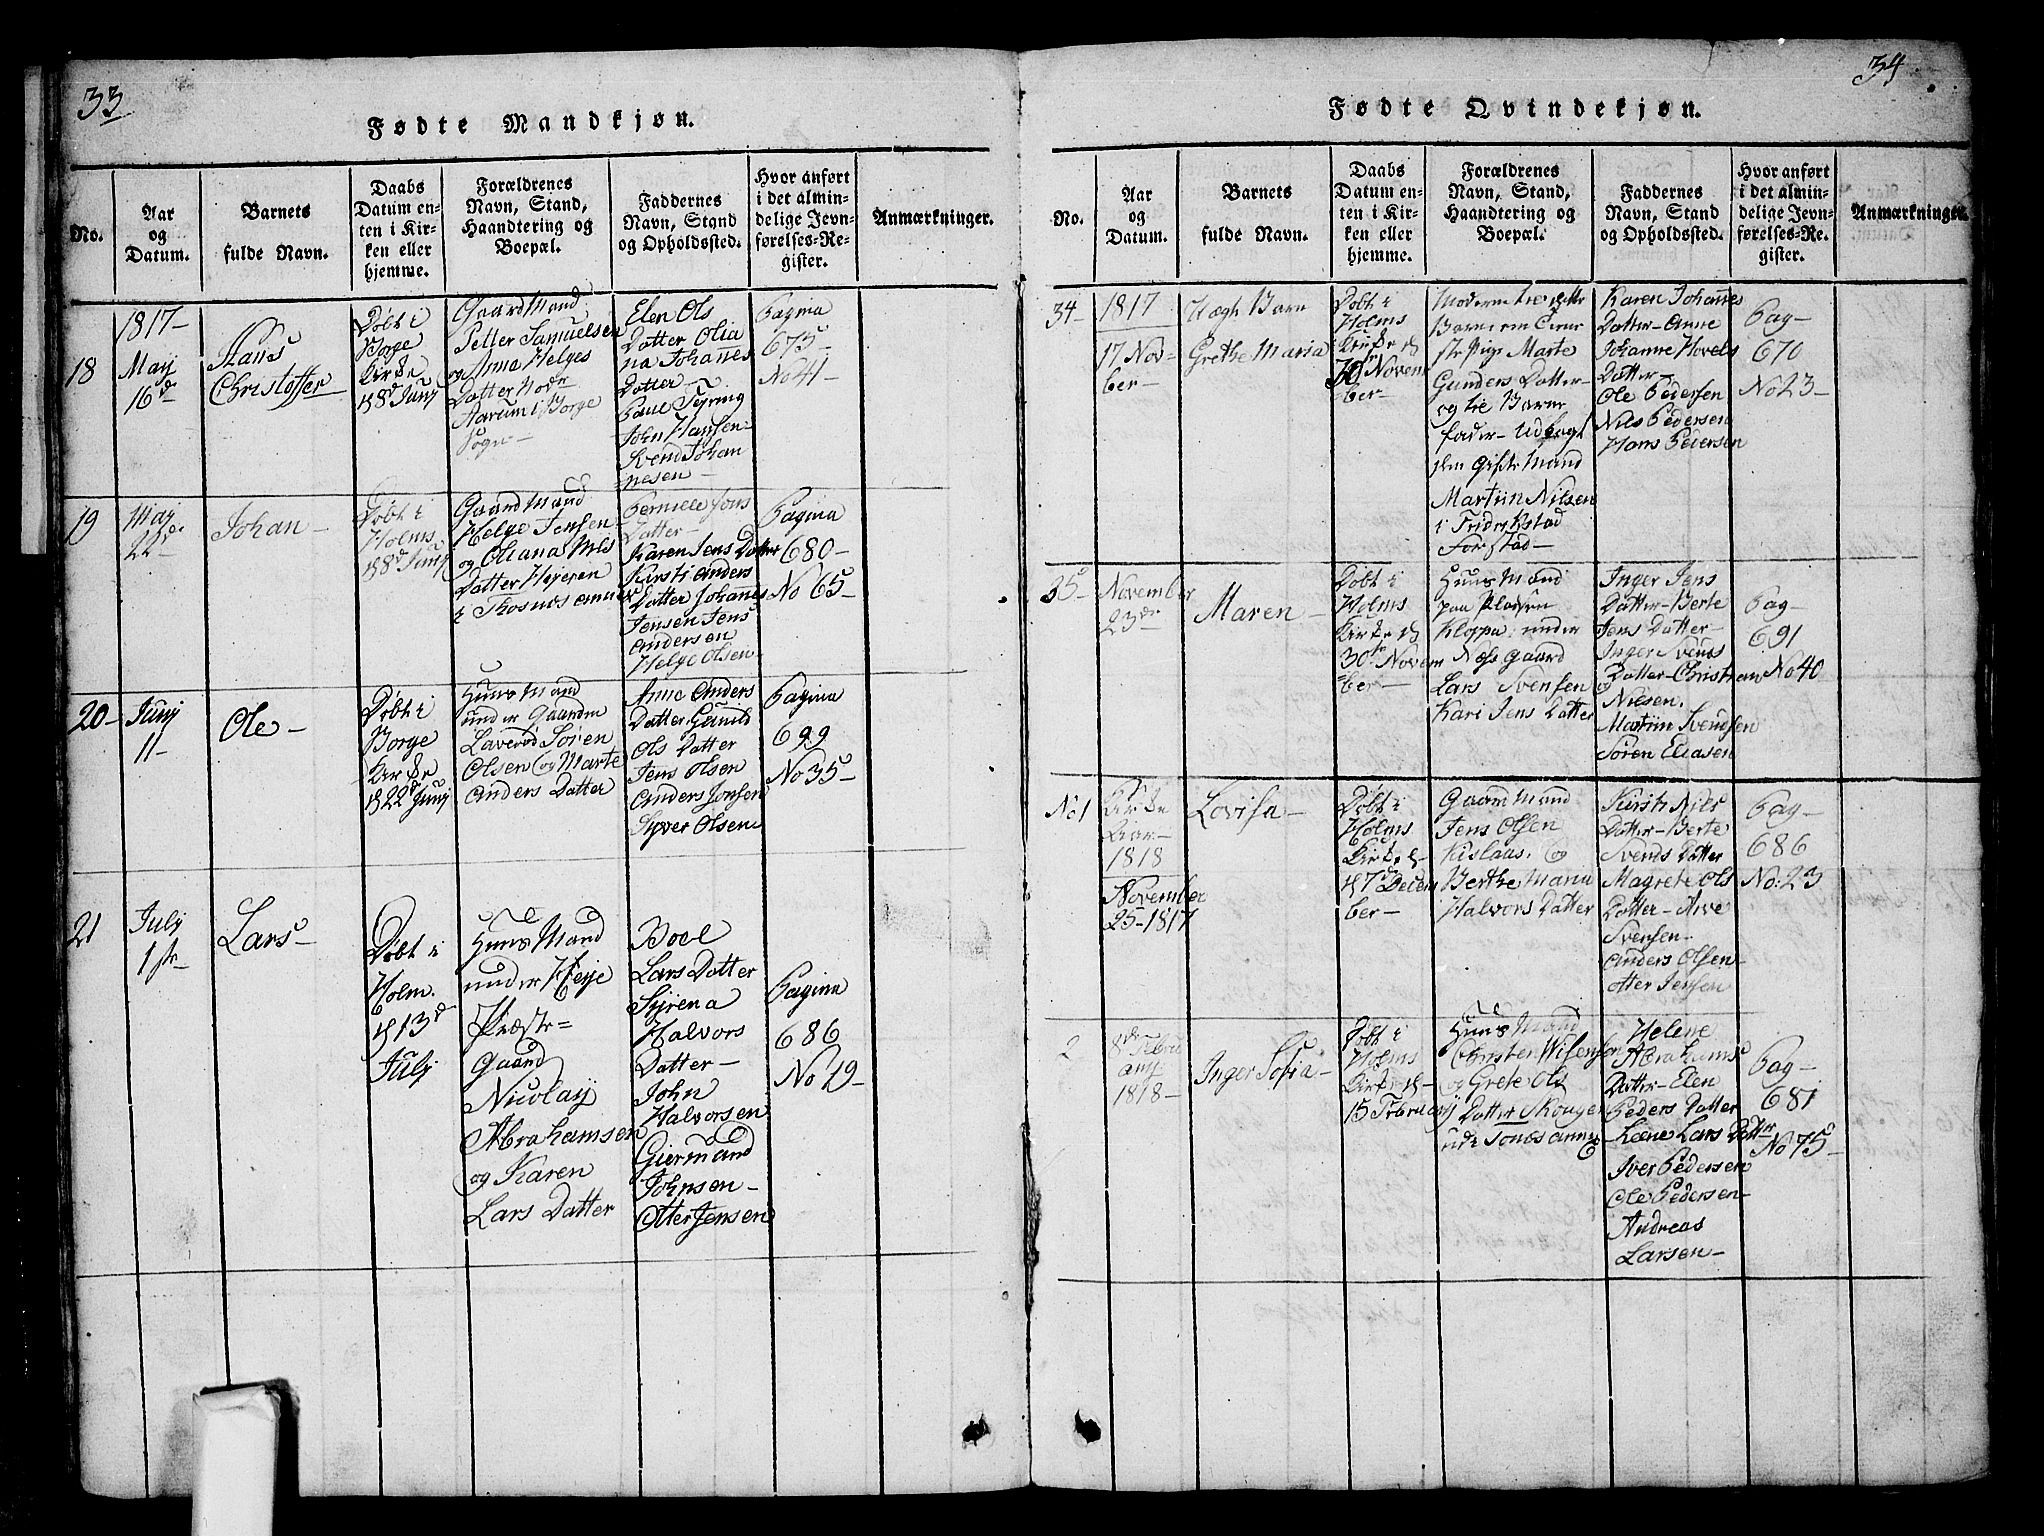 33
Fødte Mandkjøn.
No.
Aar
og
Datum.
Barnets
fulde Navn.
Daabs
Datum en-
ten i Kir-
ken eller
hjemme.
Forældrenes
Navn, Stand,
Haandtering og
Boepæl.
Faddernes
Navn, Stand
og Opholdssted.
Hvor anført
i det almin-
delige Jevn-
førelses-Re-
gister.
Anmærkninger.
18
1817-
May
16d
Hans
Christoffer
Døbt i
Borge
Kirke
d 8d Junj
Gaard Mand
Petter Samuelsen
og Anne Helges
Datter Nodr
Aarum i Borge
Sogn
Elen Ols
Datter Olia
na Johannes
Datter
John Hansen
Svend Johan
nesen -
Pagina
675
No 41-
19
May
22d
Johan -
Døbt i
Holms
d 8d Junj
Gaard Mand
Helge Jensen
og Oliana Nils
Datter
Pernille Jons
Datter -
Karen Jens Datter
Kirsti Anders
Datter Johannes
Jensen Jens
Andersen
Helge Olsen -
Pagina
680-
No 65-
20-
Junj
11-
Ole -
Døbt i
Borge
Kirke
d 22d Junj
Huus Mand
under Gaarden
Laverød Søren
Olsen og Marte
Anders Datter
Anne Anders
Datter Gunild
Ols Datter
Jens Olsen
Anders Jonsen
Syver Olsen
Pagina
699
No 35-
21
July
1ste
Lars -
Døbt i
Holm.
d 13d
July
Huus Mand
under
Præste=
Gaard
Nicolay
Abrahamsen
og Karen
Lars Datter
Boel
Lars Datter
Syrena
Halvors
Datter -
John
Halvorsen
Giermund
Johnsen -
Otter Jensen
Pagina
686
No 19-
34
Fødte Qvindekjøn.
No.
Aar
og
Datum.
Barnets
fulde Navn.
Daabs
Datum en-
ten i Kir-
ken eller
hjemme.
Forældrenes
Navn, Stand,
Haandtering og
Boepæl.
Faddernes
Navn, Stand
og Opholdssted.
Hvor anført
i det almin-
delige Jevn-
førelses-Re-
gister.
Anmærkninger.
34-
1817
17 Nov=
ber -
Uægte Barn
Grethe Maria
Døbt i
Holms
Kirke d
30 Novem
ber -
Moderen til dette
Pige Marte
Gunders Datter -
og til Barne
fader - Udlagt
den Gifte Mand
Martiin Nilsen
i Fridrikstad
Forstad -
Karen Johannes
Datter - Anne
Johanne Hovels
Datter -
Ole Pedersen
Nils Pedersen
Hans Pedersen
Pag -
670
No 23-
35-
November
23de
Maren -
Døbt i
Holms
Kirke d
30te Novem
=ber -
Huus Mand
paa Pladsen
Kloppa under
Næs Gaard
Lars Svensen og
Kari Jens Datter
Inger Jens
Datter - Berte
Jens Datter -
Inger Svends
Datter - Christian
Nilsen.
Martiin Svendsen
Søren Eliasen
Pag -
691
No 40
No 1
Kirke
Aar -
1818
November
25-1817
Lovisa -
Døbt i
Holms
Kirke d
d 7 Decem
ber -
Gaard Mand
Jens Olsen
Kislaas. og
Berthe Maria
Halvors Datter
Kirsti Nils
Datter - Berte
Svends Datter
Magrete Ols
Datter - Arve
Svensen -
Anders Olsen -
Otter Jensen
Pag -
686
No: 23
2
8de Febru
arij
1818-
Inger Sofia -
Døbt i
Holms
Kirke d -
15 Februarij
Huus Mand
Christen Nilsen
og Grete Ols
Datter
Helene
Abrahams
Datter - Elen
Peders Datter
Leene Lars Datter
Iver Pedersen
Ole Pedersen -
Andreas
Larsen -
Pag -
681
No 75-